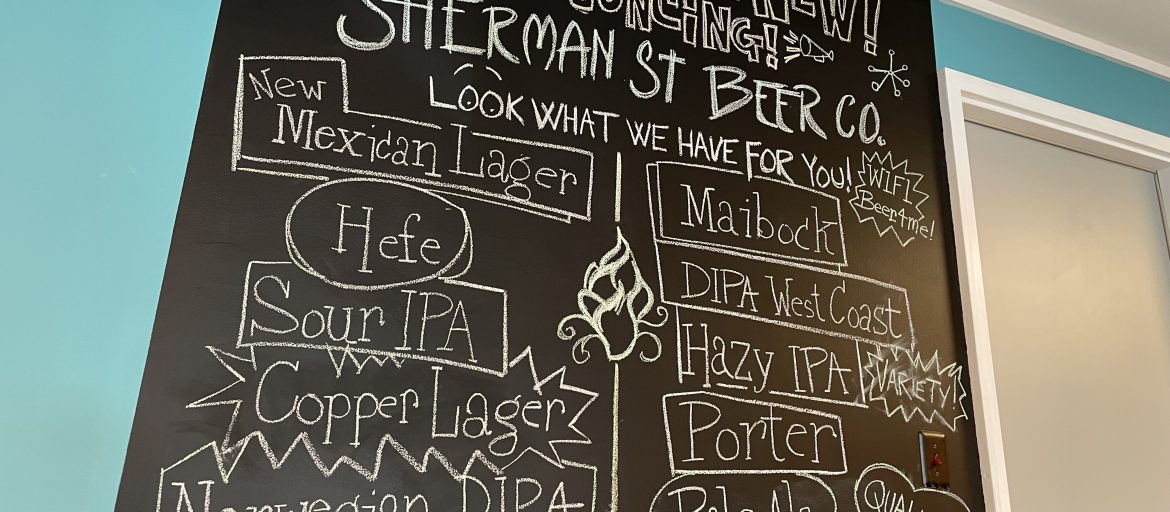 NEW!
SHERMAN ST BEER CO.
LOOK WHAT WE HAVE FOR YOU!
New
Mexican Lager
Hefe
Sour IPA
Copper Lager
Norwegian DIPA
Maibock
WIFI
Beer4me!
DIPA West Coast
Hazy IPA
VARIETY!
Porter
Pale Ale